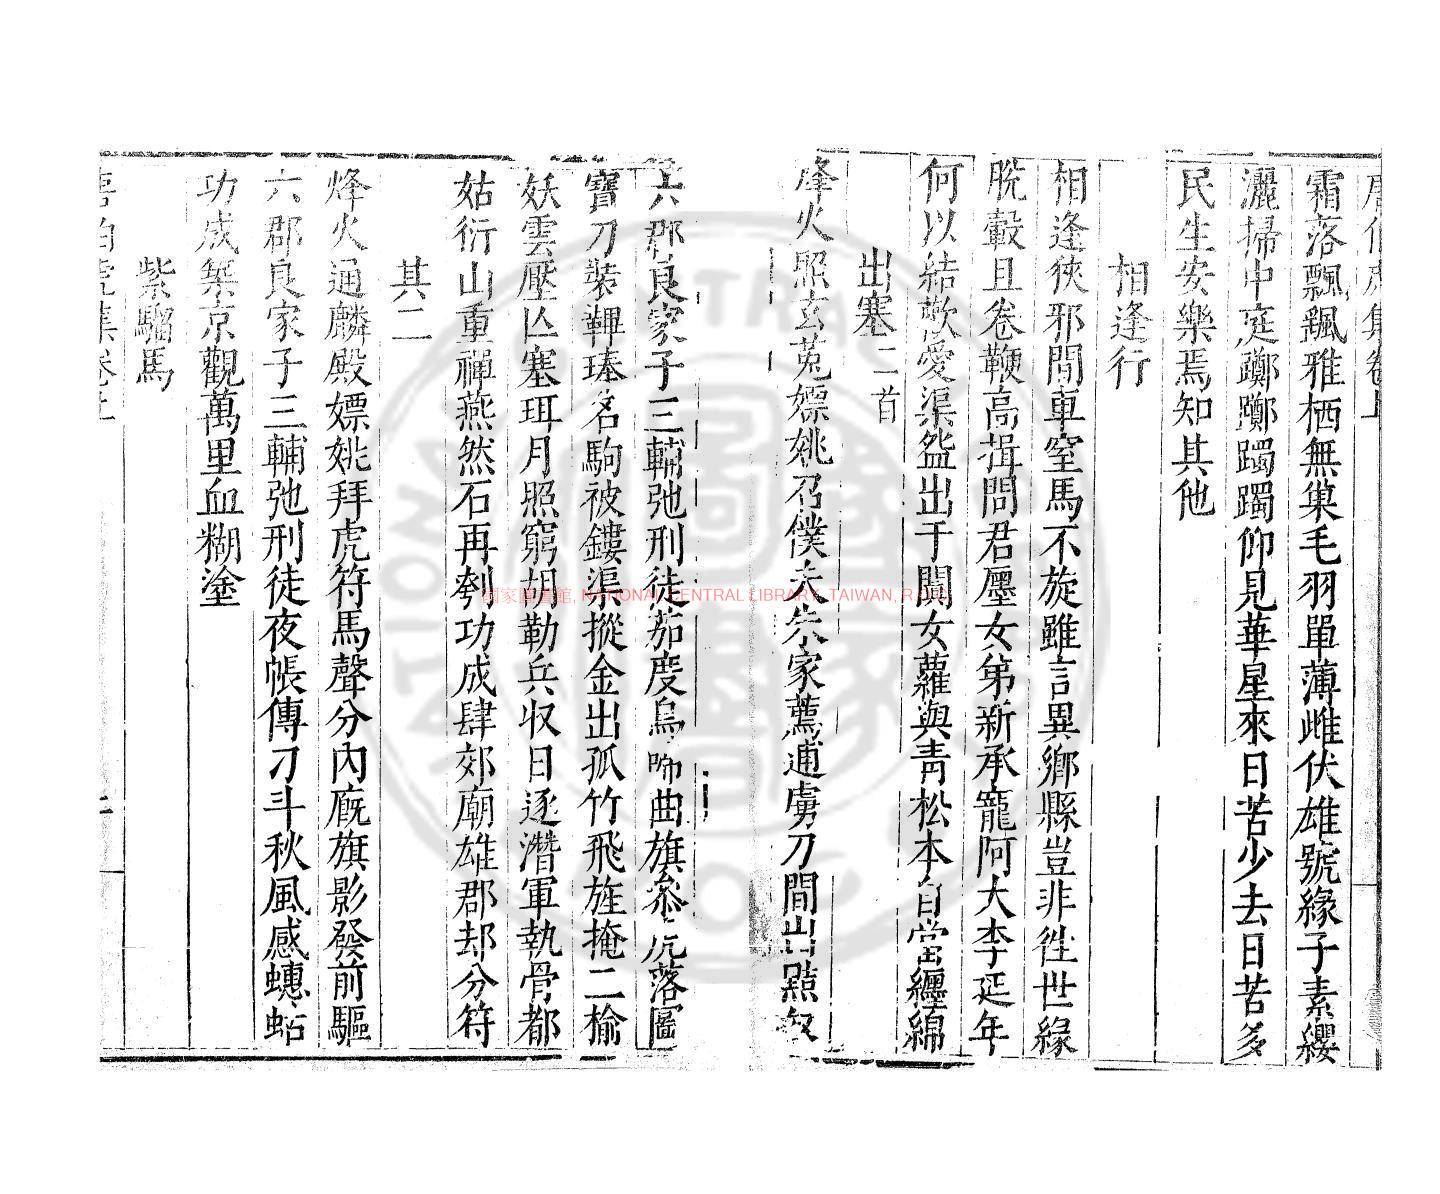 唐伯虎集卷上
霜落飄颻雅栖無巢毛羽單薄雌伏雄號緣子素纓
灑掃中庭躑躅躅仰見華星來日苦少去日苦多
民生安樂焉知其他
相逢行
相逢狹邪間車窒馬不旋雖言異鄉縣豈非徃世緣
脫轂且卷鞭高揖問君廛女弟新承寵阿大李延年
何以結歡愛渠盌出于闐女蘿與青松本自當纏綿
出塞二首
烽火照玄菟嫖姚召僕夫朱家薦逋虜刀間出黠奴
六郡良家子三輔弛刑徒茄度烏啼曲旗參虎落圖
寶刀裝鞞琫名駒被鏤渠摐金出孤竹飛旌掩二榆
妖雲壓亾塞珥月照窮胡勒兵収日逐潛軍執骨都
姑衍山重禪燕然石再刳功成肆郊廟雄郡却分符
其二
烽火通麟殿嫖姚拜虎符馬聲分內廐旗影發前驅
六郡良家子三輔弛刑徒夜帳傳刁斗秋風感蟪蛄
功成築京觀萬里血糊塗
紫騮馬
唐伯虎集卷上
國家圖書館, NATIONAL CENTRAL LIBRARY, TAIWAN, R.O.C.